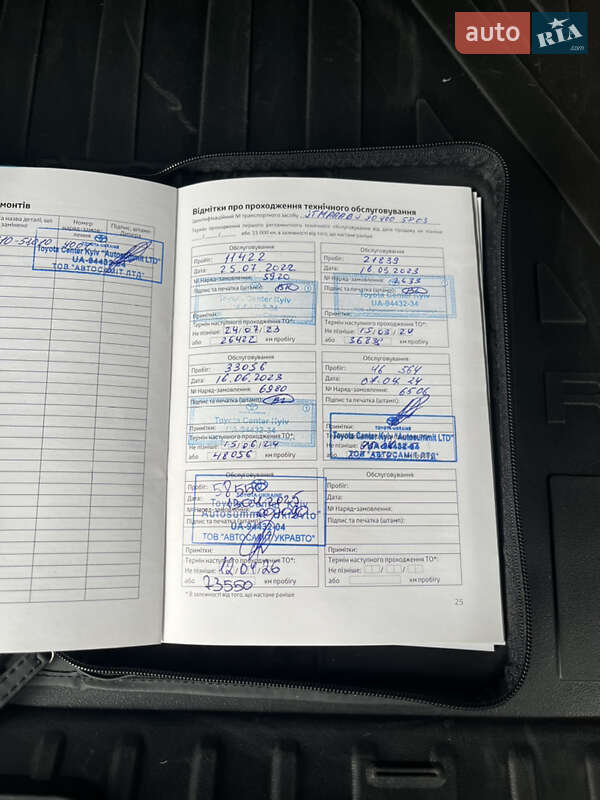 auto RIA .com
монтів
а назва деталі, що замінено
Номер наряд-замовлення
Підпис, штамп
Toyota Center Kyiv "Autosummit LTD"
UA-94432-04
ТОВ "АВТОСАМІТ ЛТД"
Відмітки про проходження технічного обслуговування
Ідентифікаційний № транспортного засобу
Термін проходження першого регламентного технічного обслуговування від дати продажу не пізніше
або 15 000 км, в залежності від того, що настане раніше
Обслуговування
Пробіг: 11422
Дата: 25.07.2022
№ Наряд-замовлення: 5920
Підпис та печатка (штамп):
Toyota Center Kyiv
Примітки:
Термін наступного проходження ТО*:
Не пізніше: 24/07/23
або 26422 км пробігу
Обслуговування
Пробіг: 21839
Дата: 16.03.2023
№ Наряд-замовлення: 2633
Підпис та печатка (штамп):
Toyota Center Kyiv
UA-94432-34
Примітки:
Термін наступного проходження ТО*:
Не пізніше: 15/03/24
або 36839 км пробігу
Обслуговування
Пробіг: 33056
Дата: 16.06.2023
№ Наряд-замовлення: 6980
Підпис та печатка (штамп):
Toyota Center Kyiv
UA-94432-34
Примітки:
Термін наступного проходження ТО*:
Не пізніше: 15/06/24
або 48056 км пробігу
Обслуговування
Пробіг: 46 564
Дата:
№ Наряд-замовлення: 6506
Підпис та печатка (штамп):
TOYOTA UKRAINE
Toyota Center Kyiv "Autosummit LTD"
UA-94432-04
ТОВ "АВТОСАМІТ ЛТД"
або км пробігу
Пробіг: 5855
Дата:
TOYOTA UKRAINE
Toyota Center Kyiv
UA-94432-04
ТОВ "АВТОСАМІТ УКРАВТО"
Примітки:
Термін наступного проходження ТО*:
Не пізніше:
або 73550 км пробігу
Обслуговування
Пробіг:
Дата:
№ Наряд-замовлення:
Підпис та печатка (штамп):
Примітки:
Термін наступного проходження ТО*:
Не пізніше:
або км пробігу
* В залежності від того, що настане раніше
25